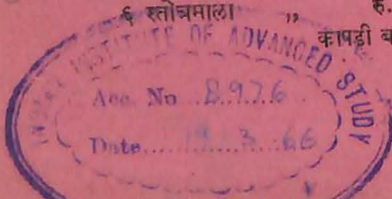 ६ स्तोत्रमाला " रु.
कापडी ब
INDIAN INSTITUTE OF ADVANCED STUDY
Acc. No 8976
Date 19 3 66